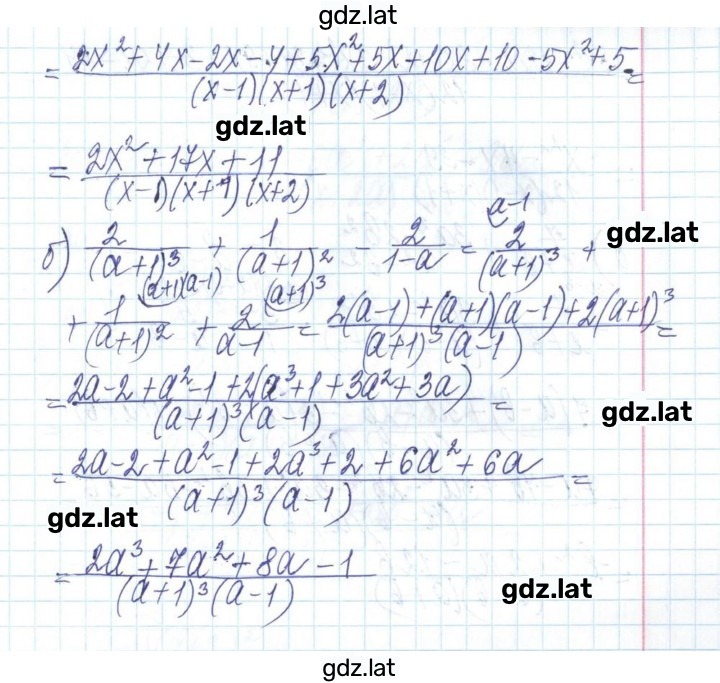 gdz.lat
= (2x² + 4x - 2x - 4 + 5x² + 5x + 10x + 10 - 5x² + 5) / ((x-1)(x+1)(x+2)) =
gdz.lat
= (2x² + 17x + 11) / ((x-1)(x+1)(x+2))
б) 2/(a+1)³ + 1/(a+1)² - 2/(1-a) = 2/(a+1)³ (a-1) +
gdz.lat
+ 1/(a+1)² (a+1)(a-1) + 2/(a-1) (a+1)³ = (2(a-1) + (a+1)(a-1) + 2(a+1)³) / ((a+1)³(a-1)) =
= (2a - 2 + a² - 1 + 2(a³ + 1 + 3a² + 3a)) / ((a+1)³(a-1)) =
gdz.lat
= (2a - 2 + a² - 1 + 2a³ + 2 + 6a² + 6a) / ((a+1)³(a-1)) =
gdz.lat
= (2a³ + 7a² + 8a - 1) / ((a+1)³(a-1))
gdz.lat
gdz.lat